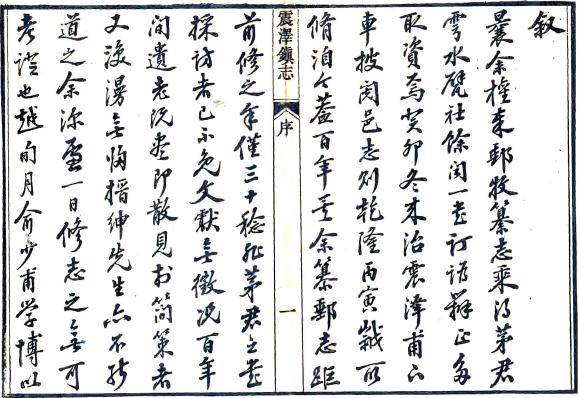 叙
曩余權秦郵牧纂志乘得茅君
雩水甓社餘聞一書訂訛辨正多
取資焉癸卯冬來治震澤甫下
車披閱邑志則乾隆丙寅歲所
脩洎今蓋百年矣余纂郵志距
震澤鎮志
序
一
前修之年僅三十稔非茅君之書
採訪者已不免文獻無徵況百年
間遺老既盡即散見於簡策者
又復漫無搢紳先生亦不能
道之余深慮一日修志之無可
考證也越旬月俞少甫學博以